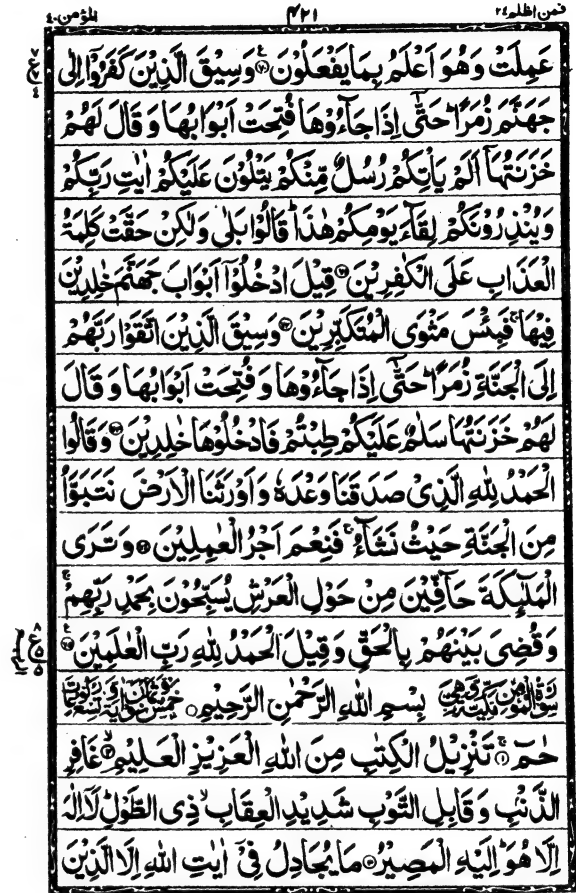 فمن اظلم ٢٤ ٤٢١ المؤمن ٤٠
عَمِلَتْ وَهُوَ اَعْلَمُ بِمَا يَفْعَلُوْنَ ﴿۷۰﴾ وَسِيْقَ الَّذِيْنَ كَفَرُوْۤا اِلٰى
جَهَنَّمَ زُمَرًا ؕ حَتّٰۤى اِذَا جَآءُوْهَا فُتِحَتْ اَبْوَابُهَا وَ قَالَ لَهُمْ
خَزَنَتُهَاۤ اَلَمْ يَاْتِكُمْ رُسُلٌ مِّنْكُمْ يَتْلُوْنَ عَلَيْكُمْ اٰيٰتِ رَبِّكُمْ
وَيُنْذِرُوْنَكُمْ لِقَآءَ يَوْمِكُمْ هٰذَا ؕ قَالُوْا بَلٰى وَلٰكِنْ حَقَّتْ كَلِمَةُ
الْعَذَابِ عَلَى الْكٰفِرِيْنَ ﴿۷۱﴾ قِيْلَ ادْخُلُوْۤا اَبْوَابَ جَهَنَّمَ خٰلِدِيْنَ
فِيْهَا ۚ فَبِئْسَ مَثْوَى الْمُتَكَبِّرِيْنَ ﴿۷۲﴾ وَسِيْقَ الَّذِيْنَ اتَّقَوْا رَبَّهُمْ
اِلَى الْجَنَّةِ زُمَرًا ؕ حَتّٰۤى اِذَا جَآءُوْهَا وَ فُتِحَتْ اَبْوَابُهَا وَ قَالَ
لَهُمْ خَزَنَتُهَا سَلٰمٌ عَلَيْكُمْ طِبْتُمْ فَادْخُلُوْهَا خٰلِدِيْنَ ﴿۷۳﴾ وَ قَالُوا
الْحَمْدُ لِلّٰهِ الَّذِيْ صَدَقَنَا وَعْدَهٗ وَ اَوْرَثَنَا الْاَرْضَ نَتَبَوَّاُ
مِنَ الْجَنَّةِ حَيْثُ نَشَآءُ ۚ فَنِعْمَ اَجْرُ الْعٰمِلِيْنَ ﴿۷۴﴾ وَ تَرَى
الْمَلٰٓئِكَةَ حَآفِّيْنَ مِنْ حَوْلِ الْعَرْشِ يُسَبِّحُوْنَ بِحَمْدِ رَبِّهِمْ ۚ
وَ قُضِيَ بَيْنَهُمْ بِالْحَقِّ وَ قِيْلَ الْحَمْدُ لِلّٰهِ رَبِّ الْعٰلَمِيْنَ ﴿۷۵﴾
بِسْمِ اللّٰهِ الرَّحْمٰنِ الرَّحِيْمِ
حٰمٓ ۚ﴿۱﴾ تَنْزِيْلُ الْكِتٰبِ مِنَ اللّٰهِ الْعَزِيْزِ الْعَلِيْمِ ۙ﴿۲﴾ غَافِرِ
الذَّنْۢبِ وَ قَابِلِ التَّوْبِ شَدِيْدِ الْعِقَابِ ۙ ذِي الطَّوْلِ ؕ لَاۤ اِلٰهَ
اِلَّا هُوَ ؕ اِلَيْهِ الْمَصِيْرُ ﴿۳﴾ مَا يُجَادِلُ فِيْۤ اٰيٰتِ اللّٰهِ اِلَّا الَّذِيْنَ